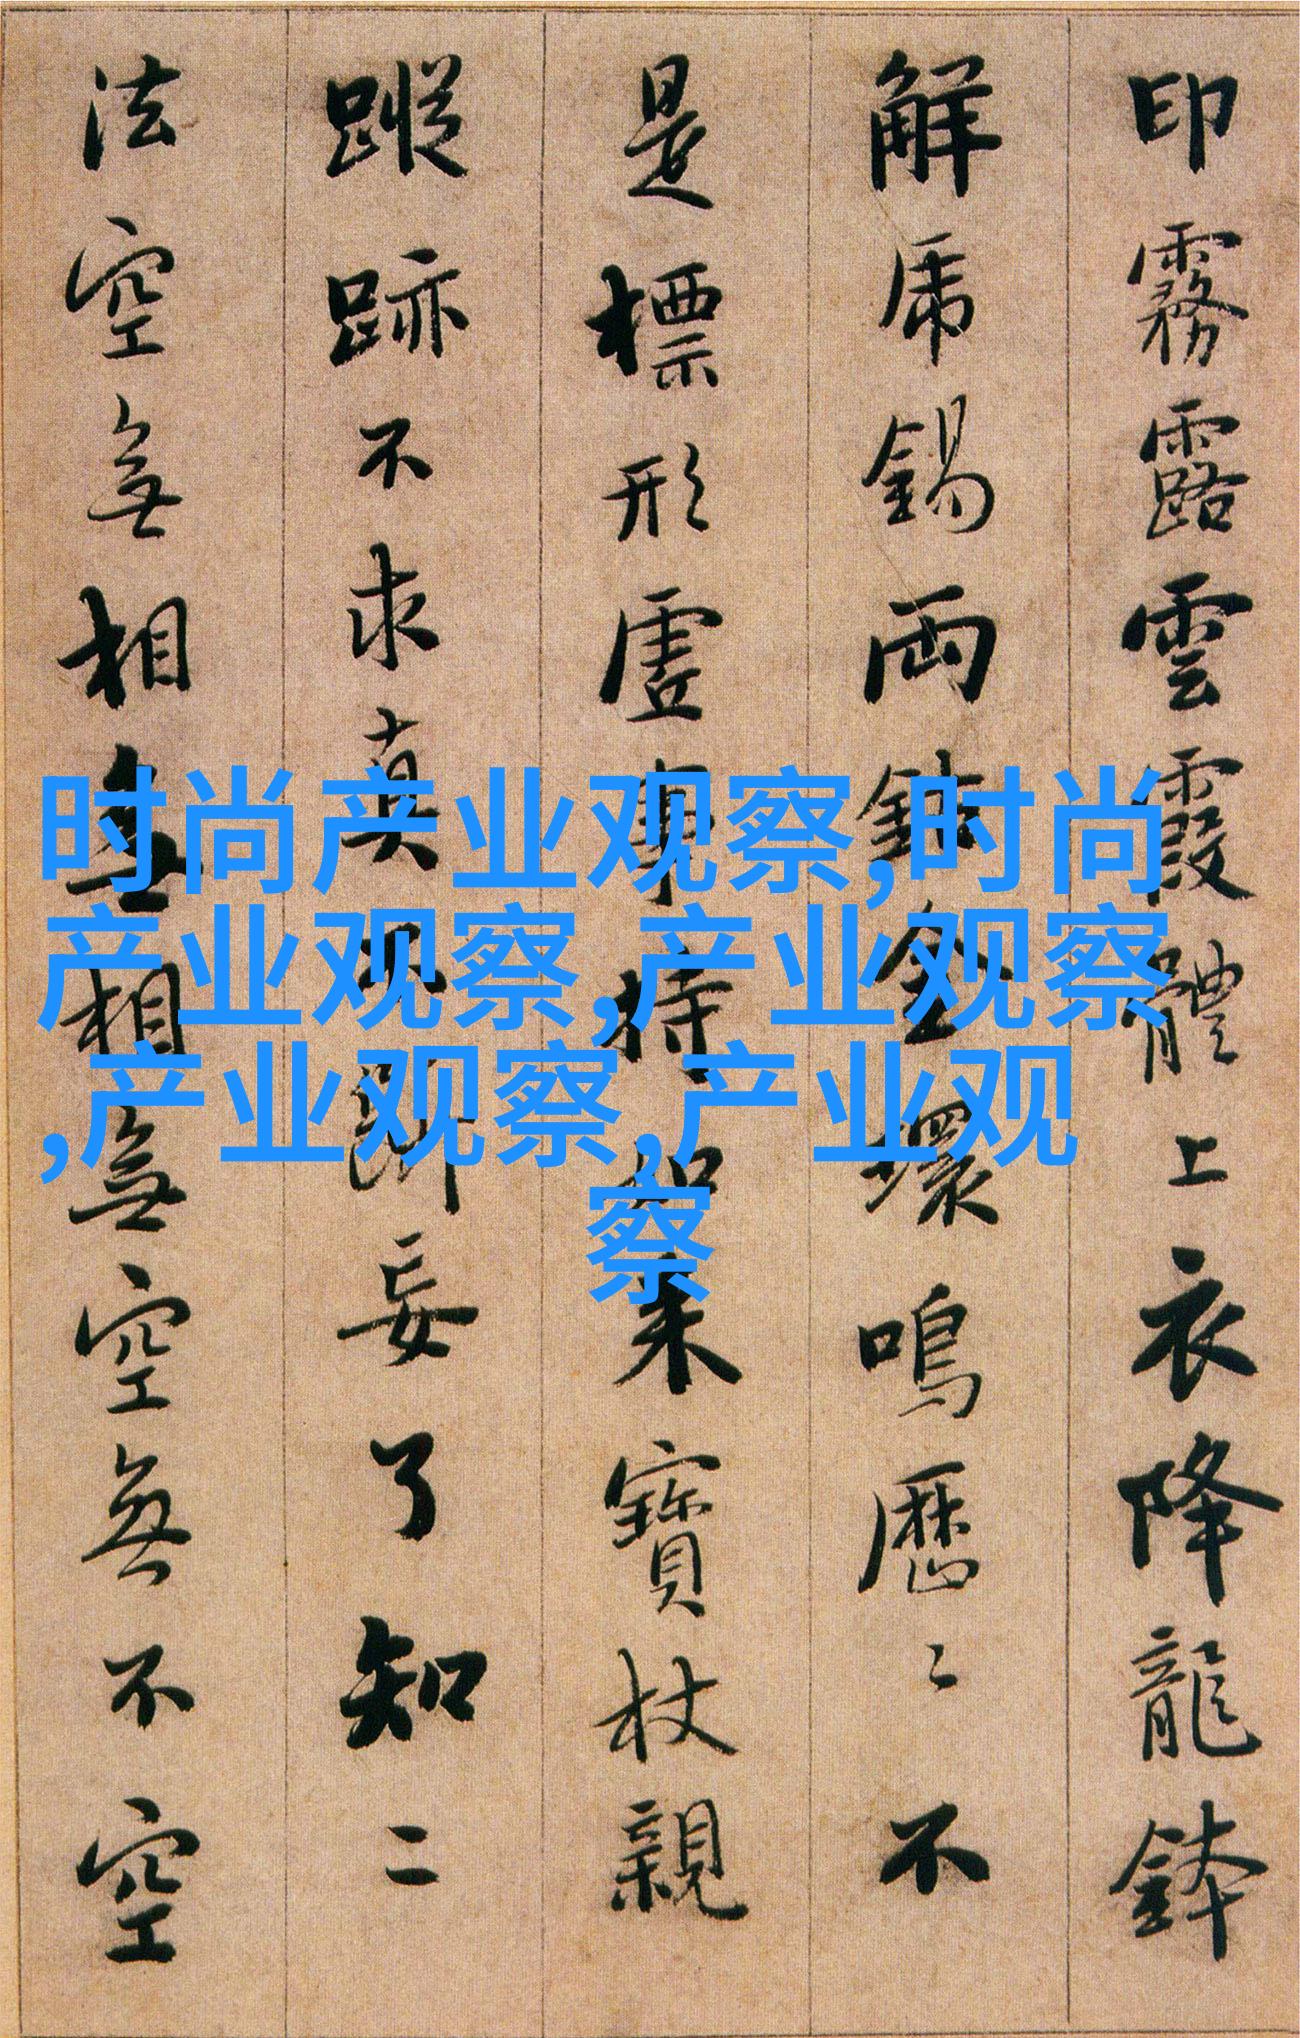 印霧露雲霞體上衣降龍鉢
解虎錫兩鈷金環鳴歷〻不
是標形虛事持如来寶杖親
蹤跡不求真不斷妄了知二
法空無相無相無空無不空
时尚产业观察,时尚
产业观察,产业观察
,产业观察,产业观
察